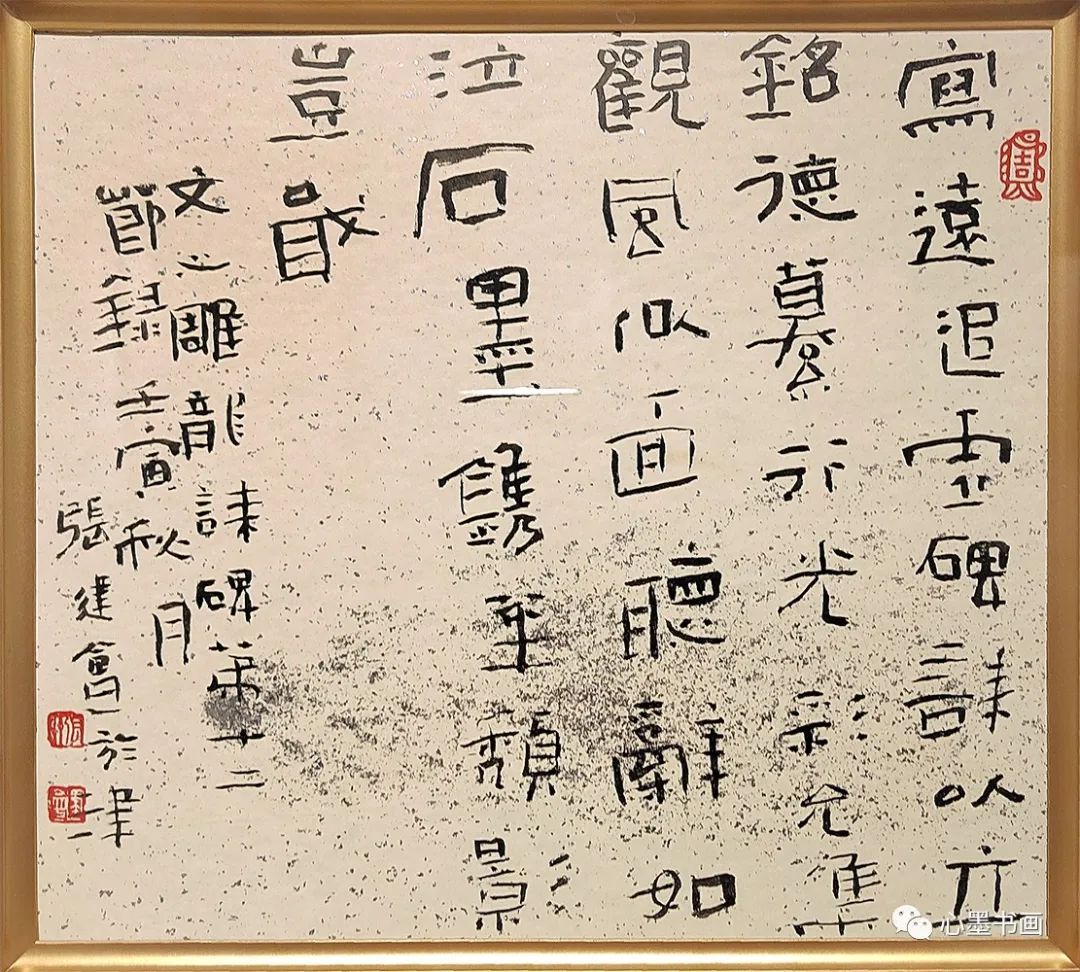 寫遠追虛碑誄以立
銘德慕行光彩允集
觀風似面聽辭如
泣石墨鐫華頹影
豈戢
文心雕龍誄碑第十二
節錄壬寅秋月
張建會於津
心墨书画